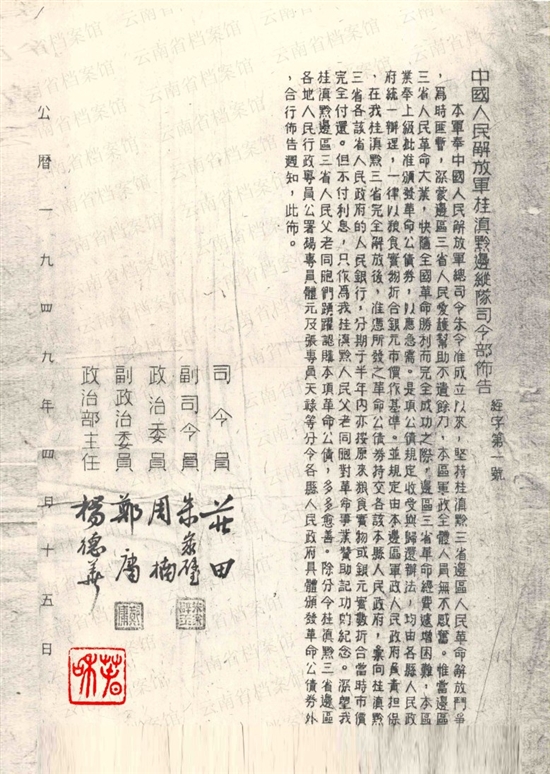 中國人民解放軍桂滇黔邊縱隊司令部佈告
經字第一號
本軍奉中國人民解放軍總司令朱令准成立以來，堅持桂滇黔三省邊區人民革命解放鬥爭
，為時匪暫，深蒙邊區三省人民愛護幫助不遺餘力，本區軍政全體人員無不感奮。惟當邊區
三省人民革命大業，快隨全國革命勝利而完全成功之際，邊區三省革命經費遽增困難，本區
業奉上級批准頒發革命公債券，以應急需。是項公債規定收受與歸還辦法，均由各縣人民政
府統一辦理，一律以粮食實物折合銀元市價作基準。並規定由本邊區軍政人民政府負責担保
，在我桂滇黔三省完全解放後，准憑所發之革命公債券持交各該本縣人民政府，彙向桂滇黔
三省各該省人民政府的人民銀行，分期于半年內亦按原來粮食實物或銀元實數折合當時市價
完全付還。但不付利息，只作為我桂滇黔人民父老同胞對革命事業贊助記功的紀念。深望我
桂滇黔邊區三省人民父老同胞們踴躍認購本項革命公債，多多愈善。除分令桂滇黔三省邊區
各地人民行政專員公署楊專員體元及張專員天祿等分令各縣人民政府具體頒發革命公債券外
，合行佈告週知，此佈。
司令員 莊田
副司令員 朱家璧
政治委員 周楠
副政治委員 鄭庸
政治部主任 楊德華
公曆一九四九年四月十五日
云南省档案馆